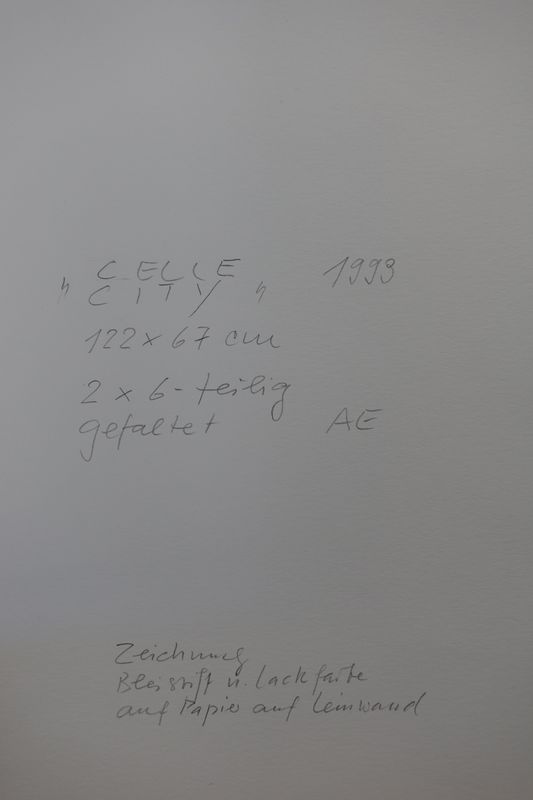 " CELLE
CITY " 1993
122 x 67 cm
2 x 6-teilig
gefaltet AE
Zeichnung
Bleistift u. Lackfarbe
auf Papier auf Leinwand